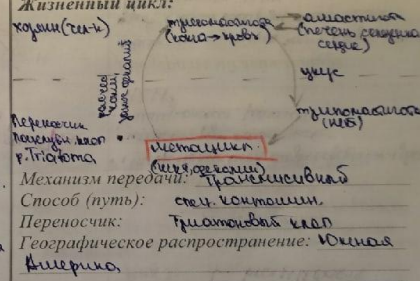 Жизненный цикл:
хозяин (чел-к)
трипомастигота
(кожа → кровь)
амастигота
(печень, селезенка
сердце)
укус
расчес
кожи,
трипомастигота
Переносчик
поцелуйн. клоп
р. Triatoma
метацикл.
(кишк, фекалии)
Механизм передачи: Трансмиссивный
Способ (путь): спец. контамин.
Переносчик: Триатомовый клоп
Географическое распространение: Южная
Америка